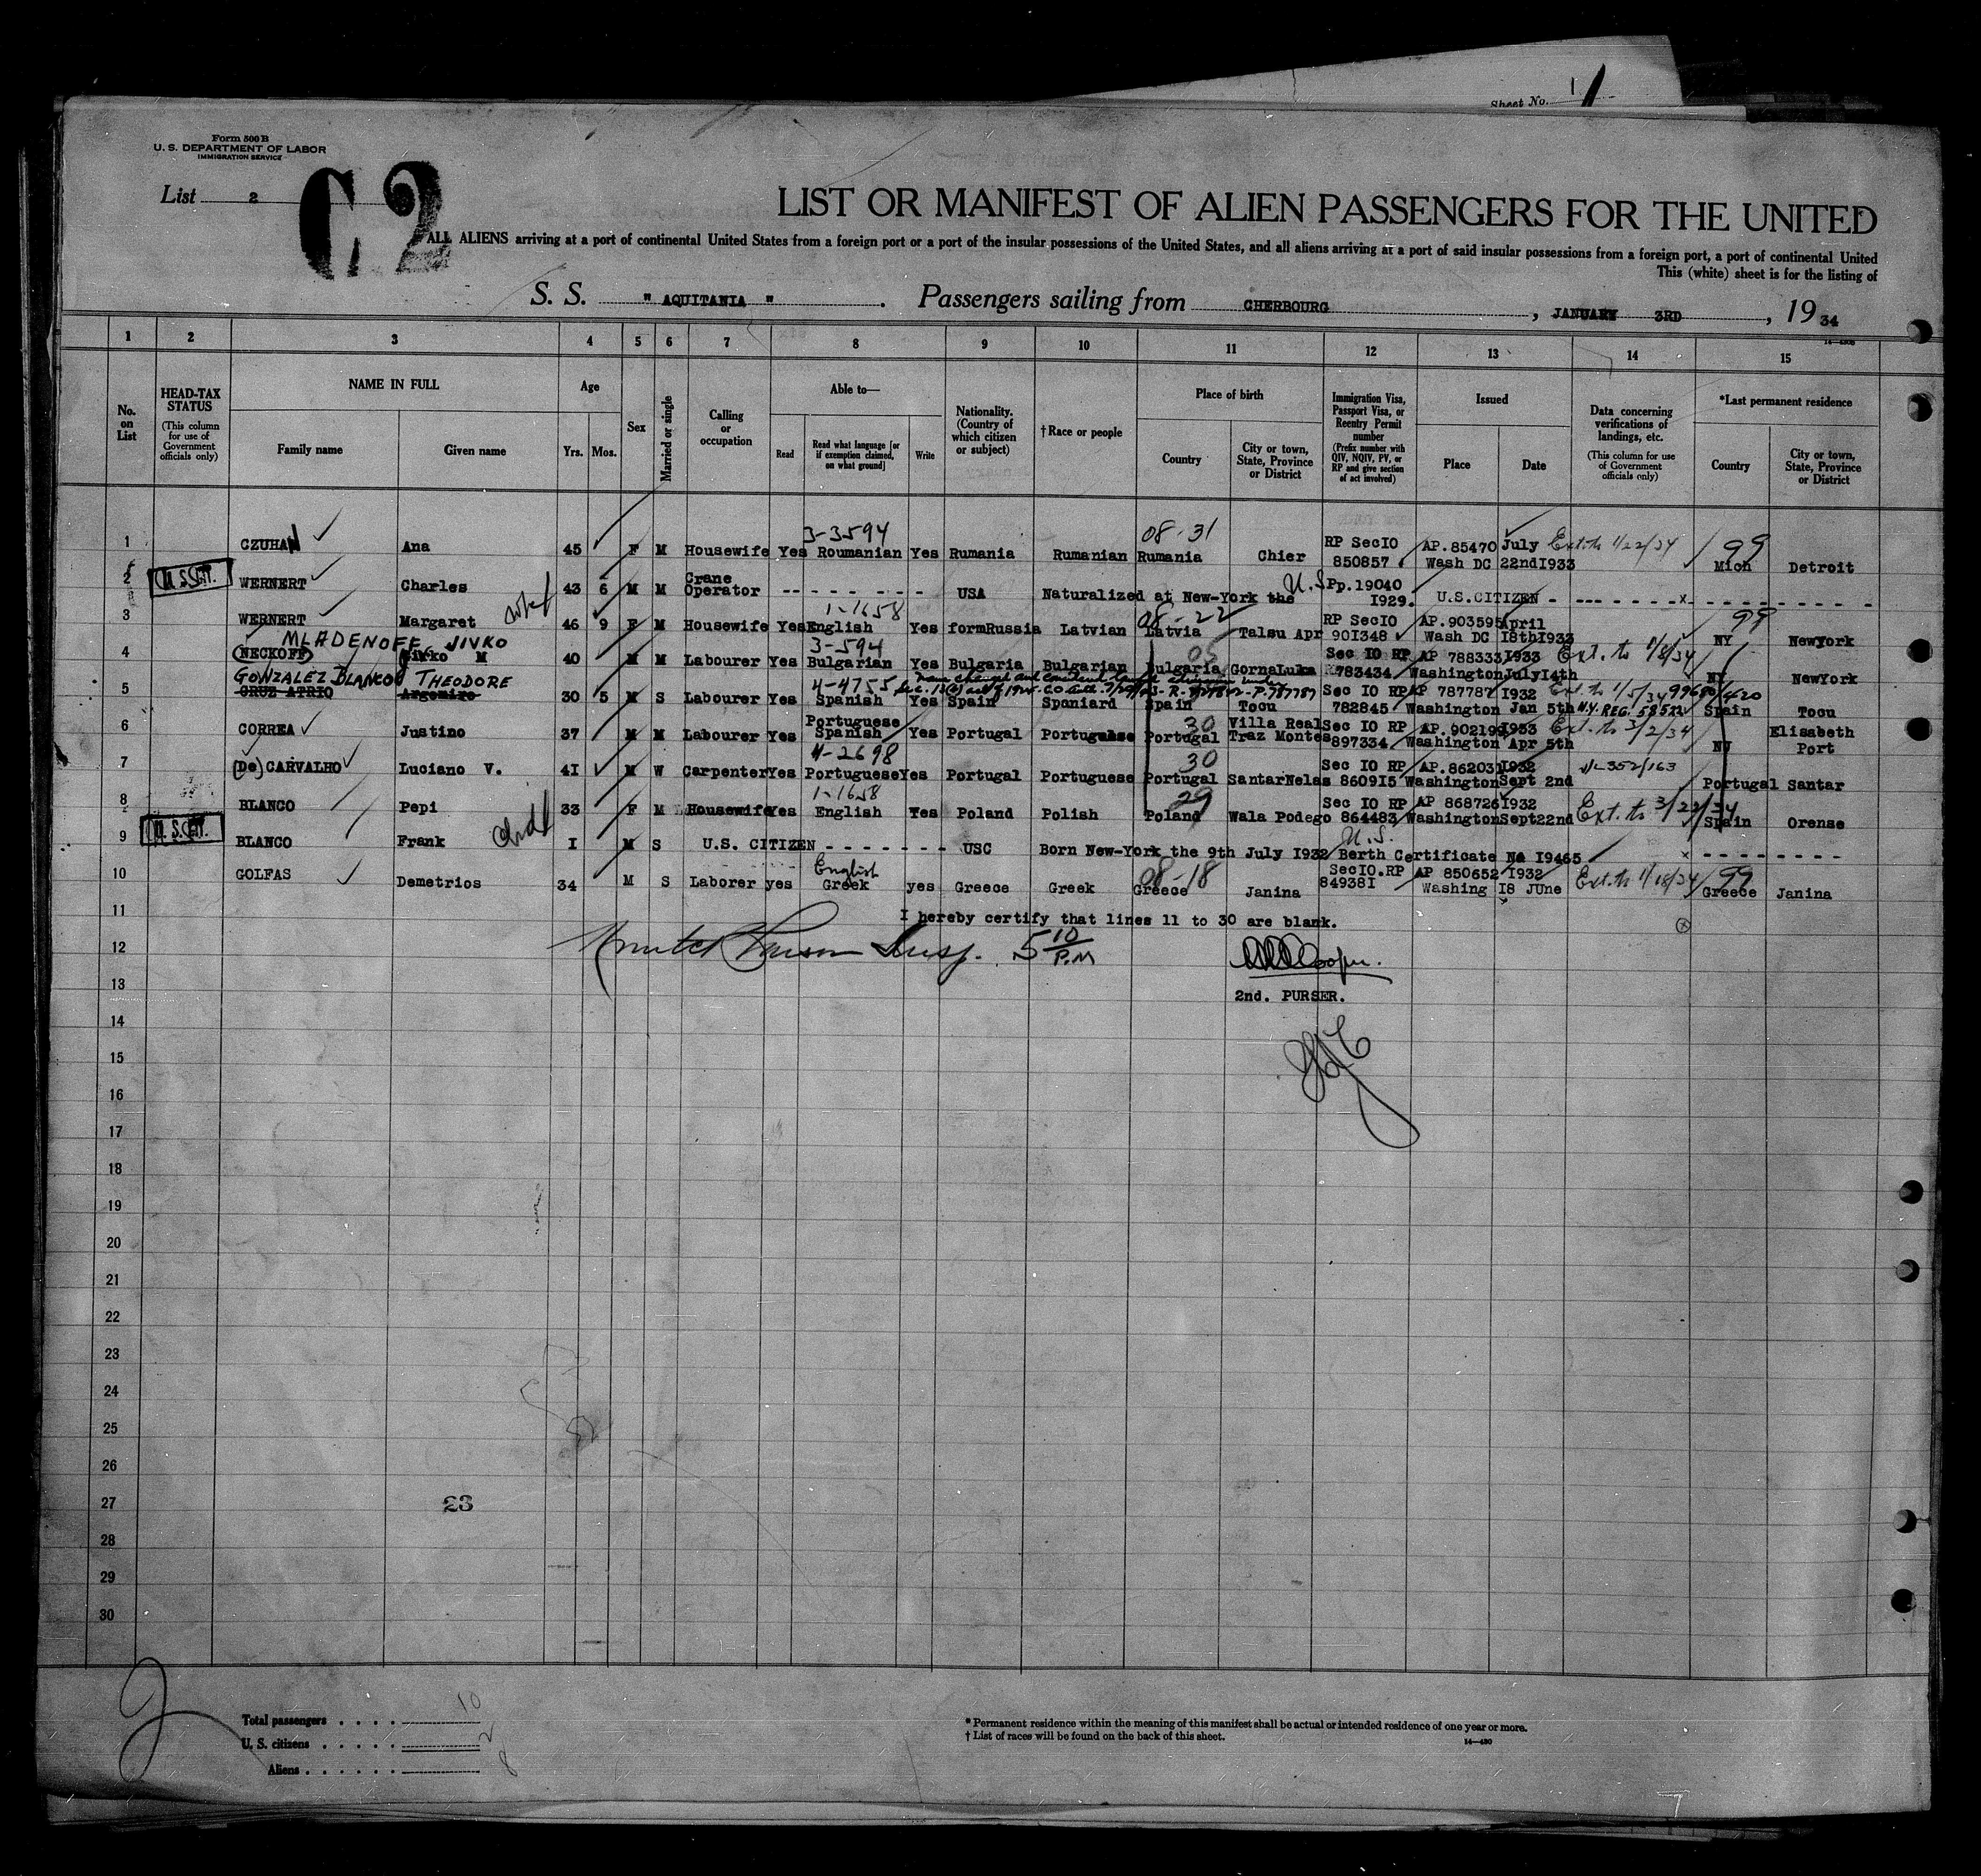 Sheet No. 1
Form 500 B
U. S. DEPARTMENT OF LABOR
IMMIGRATION SERVICE
List 2
C2
LIST OR MANIFEST OF ALIEN PASSENGERS FOR THE UNITED
ALL ALIENS arriving at a port of continental United States from a foreign port or a port of the insular possessions of the United States, and all aliens arriving at a port of said insular possessions from a foreign port, a port of continental United
This (white) sheet is for the listing of
S. S. " AQUITANIA " . Passengers sailing from CHERBOURG , JANUARY 3RD , 19 34
1 2 3 4 5 6 7 8 9 10 11 12 13 14 15
No. on List
HEAD-TAX STATUS
(This column for use of Government officials only)
NAME IN FULL
Family name Given name
Age
Yrs. Mos.
Sex
Married or single
Calling or occupation
Able to—
Read
Read what language [or if exemption claimed, on what ground]
Write
Nationality. (Country of which citizen or subject)
†Race or people
Place of birth
Country
City or town, State, Province or District
Immigration Visa, Passport Visa, or Reentry Permit number
(Prefix number with QIV, NQIV, PV, or RP and give section of act involved)
Issued
Place Date
Data concerning verifications of landings, etc.
(This column for use of Government officials only)
*Last permanent residence
Country
City or town, State, Province or District
3-3594 08-31
1 CZUHAN Ana 45 F M Housewife Yes Roumanian Yes Rumania Rumanian Rumania Chier RP SecIO 850857 AP.85470 Wash DC July 22ndI933 Ext. to 1/22/34 99 Mich Detroit
2 U.S.CIT. WERNERT Charles 43 6 M M Crane Operator - - - - - - - - USA Naturalized at New-York the U.S Pp.19040 I929. U.S.CITIZEN - - - - - - - -x- - - - - - - - - -
1-1658 08-22
3 WERNERT Margaret wife 46 9 F M Housewife Yes English Yes formRussia Latvian Latvia Talsu Apr RP SecIO 90I348 AP.903595 Wash DC April I8thI933 99 NY NewYork
MLADENOFF, JIVKO 3-594 05
4 (NECKOFF) Jivko M 40 M M Labourer Yes Bulgarian Yes Bulgaria Bulgarian Bulgaria GornaLuka Sec IO RP 783434 AP 788333 Washington I933 JulyI4th Ext. to 1/8/34 NY NewYork
GONZALEZ BLANCO THEODORE 4-4755
5 CRUZ ATRIO Argemiro 30 5 M S Labourer Yes Spanish Yes Spain Spaniard Spain Tocu Sec IO RP 782845 AP 787787 Washington I932 Jan 5th Ext. to 1/5/34 N.Y. REG. 58522 Spain Tocu
30
6 CORREA Justino 37 M M Labourer Yes Portuguese Spanish Yes Portugal Portuguese Portugal Villa Real Traz Montes Sec IO RP 897334 AP.902199 Washington I933 Apr 5th Ext. to 3/2/34 NJ Elisabeth Port
4-2698 30
7 (De) CARVALHO Luciano V. 4I M W Carpenter Yes Portuguese Yes Portugal Portuguese Portugal SantarNelas Sec IO RP 8609I5 AP.862031 Washington I932 Sept 2nd VL352/163 Portugal Santar
1-1658 29
8 BLANCO Pepi 33 F M Housewife Yes English Yes Poland Polish Poland Wala Podego Sec IO RP 864483 AP 868726 Washington I932 Sept22nd Ext. to 3/22/34 Spain Orense
9 U.S.CIT. BLANCO Frank child I M S U.S. CITIZEN - - - - - - - USC Born New-York the 9th July I932 U.S. Berth Certificate No I9465 x - - - - - - - -
English 08-18
10 GOLFAS Demetrios 34 M S Laborer yes Greek yes Greece Greek Greece Janina SecIO.RP 84938I AP 850652 Washing I932 I8 JUne Ext. to 1/18/34 99 Greece Janina
11 I hereby certify that lines 11 to 30 are blank.
12 Insp. 5 10 P.M Cooper.
13 2nd. PURSER.
14
15
16
17
18
19
20
21
22
23
24
25
26
27 23
28
29
30
2
Total passengers . . . . 10
U. S. citizens . . . . . 2
Aliens . . . . . . 8
* Permanent residence within the meaning of this manifest shall be actual or intended residence of one year or more.
† List of races will be found on the back of this sheet.
14—430
7